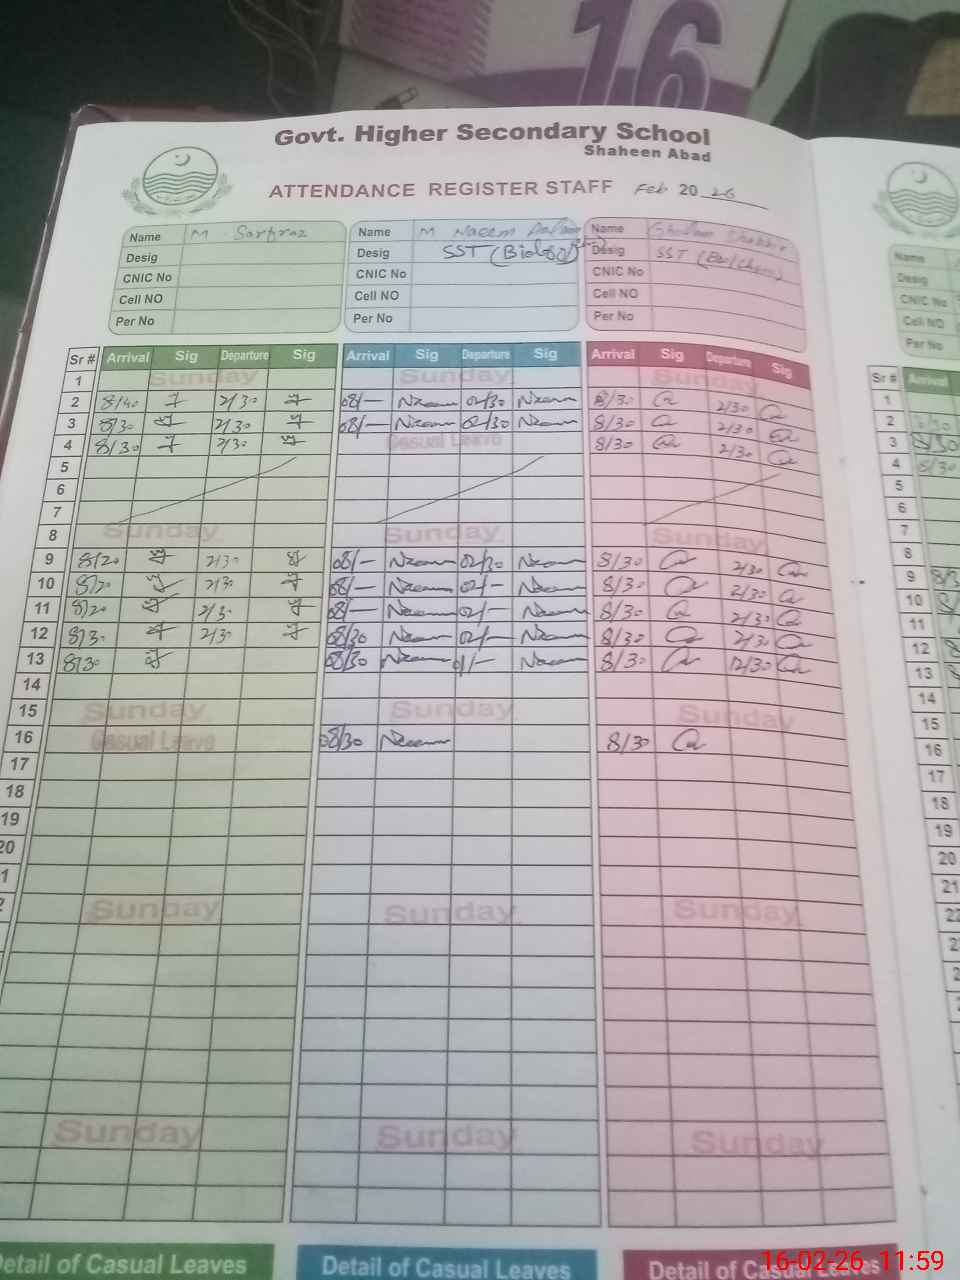 16
Govt. Higher Secondary School
Shaheen Abad
ATTENDANCE REGISTER STAFF Feb 2026
Name M Sarfraz Name M Naeem Name
Desig Desig SST (Biology) Desig SST
CNIC No CNIC No CNIC No
Cell NO Cell NO Cell NO
Per No Per No Per No
Name
Desig
CNIC No
Cell NO
Per No
Sr # Arrival Sig Departure Sig Arrival Sig Departure Sig Arrival Sig Departure Sig
1 Sunday Sunday Sunday
2 8/40 2/30 08/- Naeem 02/30 Naeem 8/30 2/30
3 8/30 2/30 08/- Naeem 02/30 Naeem 8/30 2/30
4 8/30 2/30 Casual Leave 8/30 2/30
5
6
7
8 Sunday Sunday Sunday
9 8/20 2/30 08/- Naeem 02/30 Naeem 8/30 2/30
10 8/20 2/30 08/- Naeem 02/- Naeem 8/30 2/30
11 8/20 2/30 08/- Naeem 02/- Naeem 8/30 2/30
12 8/30 2/30 08/30 Naeem 02/- Naeem 8/30 2/30
13 8/30 08/30 Naeem 01/- Naeem 8/30 12/30
14
15 Sunday Sunday Sunday
16 Casual Leave 08/30 Naeem 8/30
17
18
19
20
Sunday Sunday Sunday
Sunday Sunday Sunday
Detail of Casual Leaves Detail of Casual Leaves Detail of Casual Leaves
Sr # Arrival
1
2
3
4
5
6
7
8
9
10
11
12
13
14
15
16
17
18
19
20
21
22
16-02-26 11:59